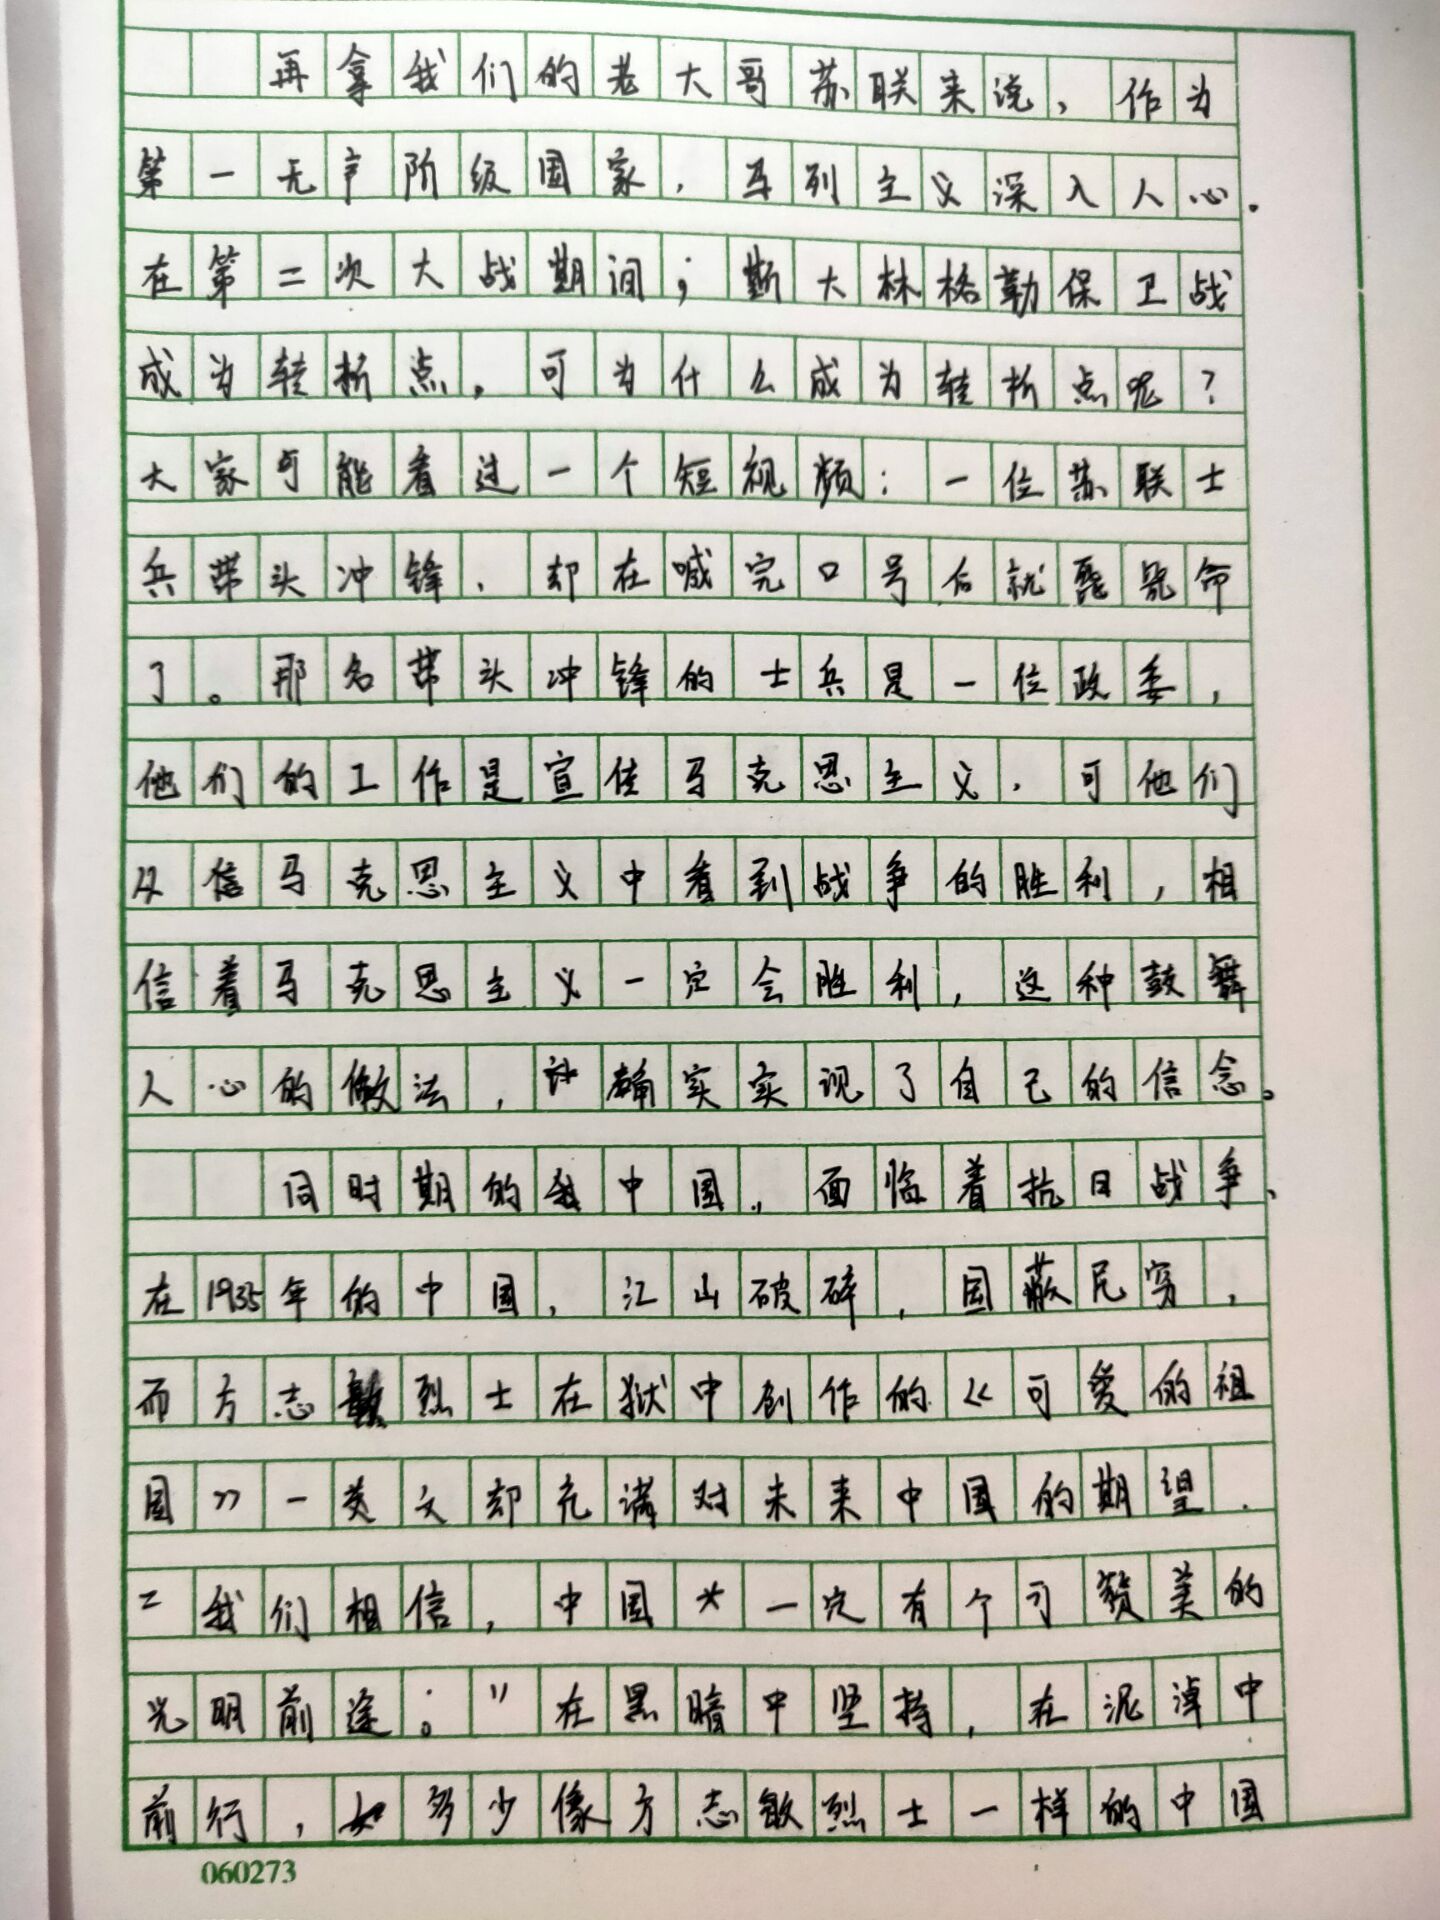 再拿我们的老大哥苏联来说，作为
第一无产阶级国家，马列主义深入人心。
在第二次大战期间；斯大林格勒保卫战
成为转折点，可为什么成为转折点呢？
大家可能看过一个短视频：一位苏联士
兵带头冲锋，却在喊完口号后就毙命
了。那名带头冲锋的士兵是一位政委，
他们的工作是宣传马克思主义，可他们
从信马克思主义中看到战争的胜利，相
信着马克思主义一定会胜利，这种鼓舞
人心的做法，确实实现了自己的信念。
同时期的中国，面临着抗日战争、
在1935年的中国，江山破碎，国蔽民穷，
而方志敏烈士在狱中创作的《可爱的祖
国》一类文却充满对未来中国的期望.
"我们相信，中国一定有个可赞美的
光明前途。"在黑暗中坚持，在泥淖中
前行，多少像方志敏烈士一样的中国
060273